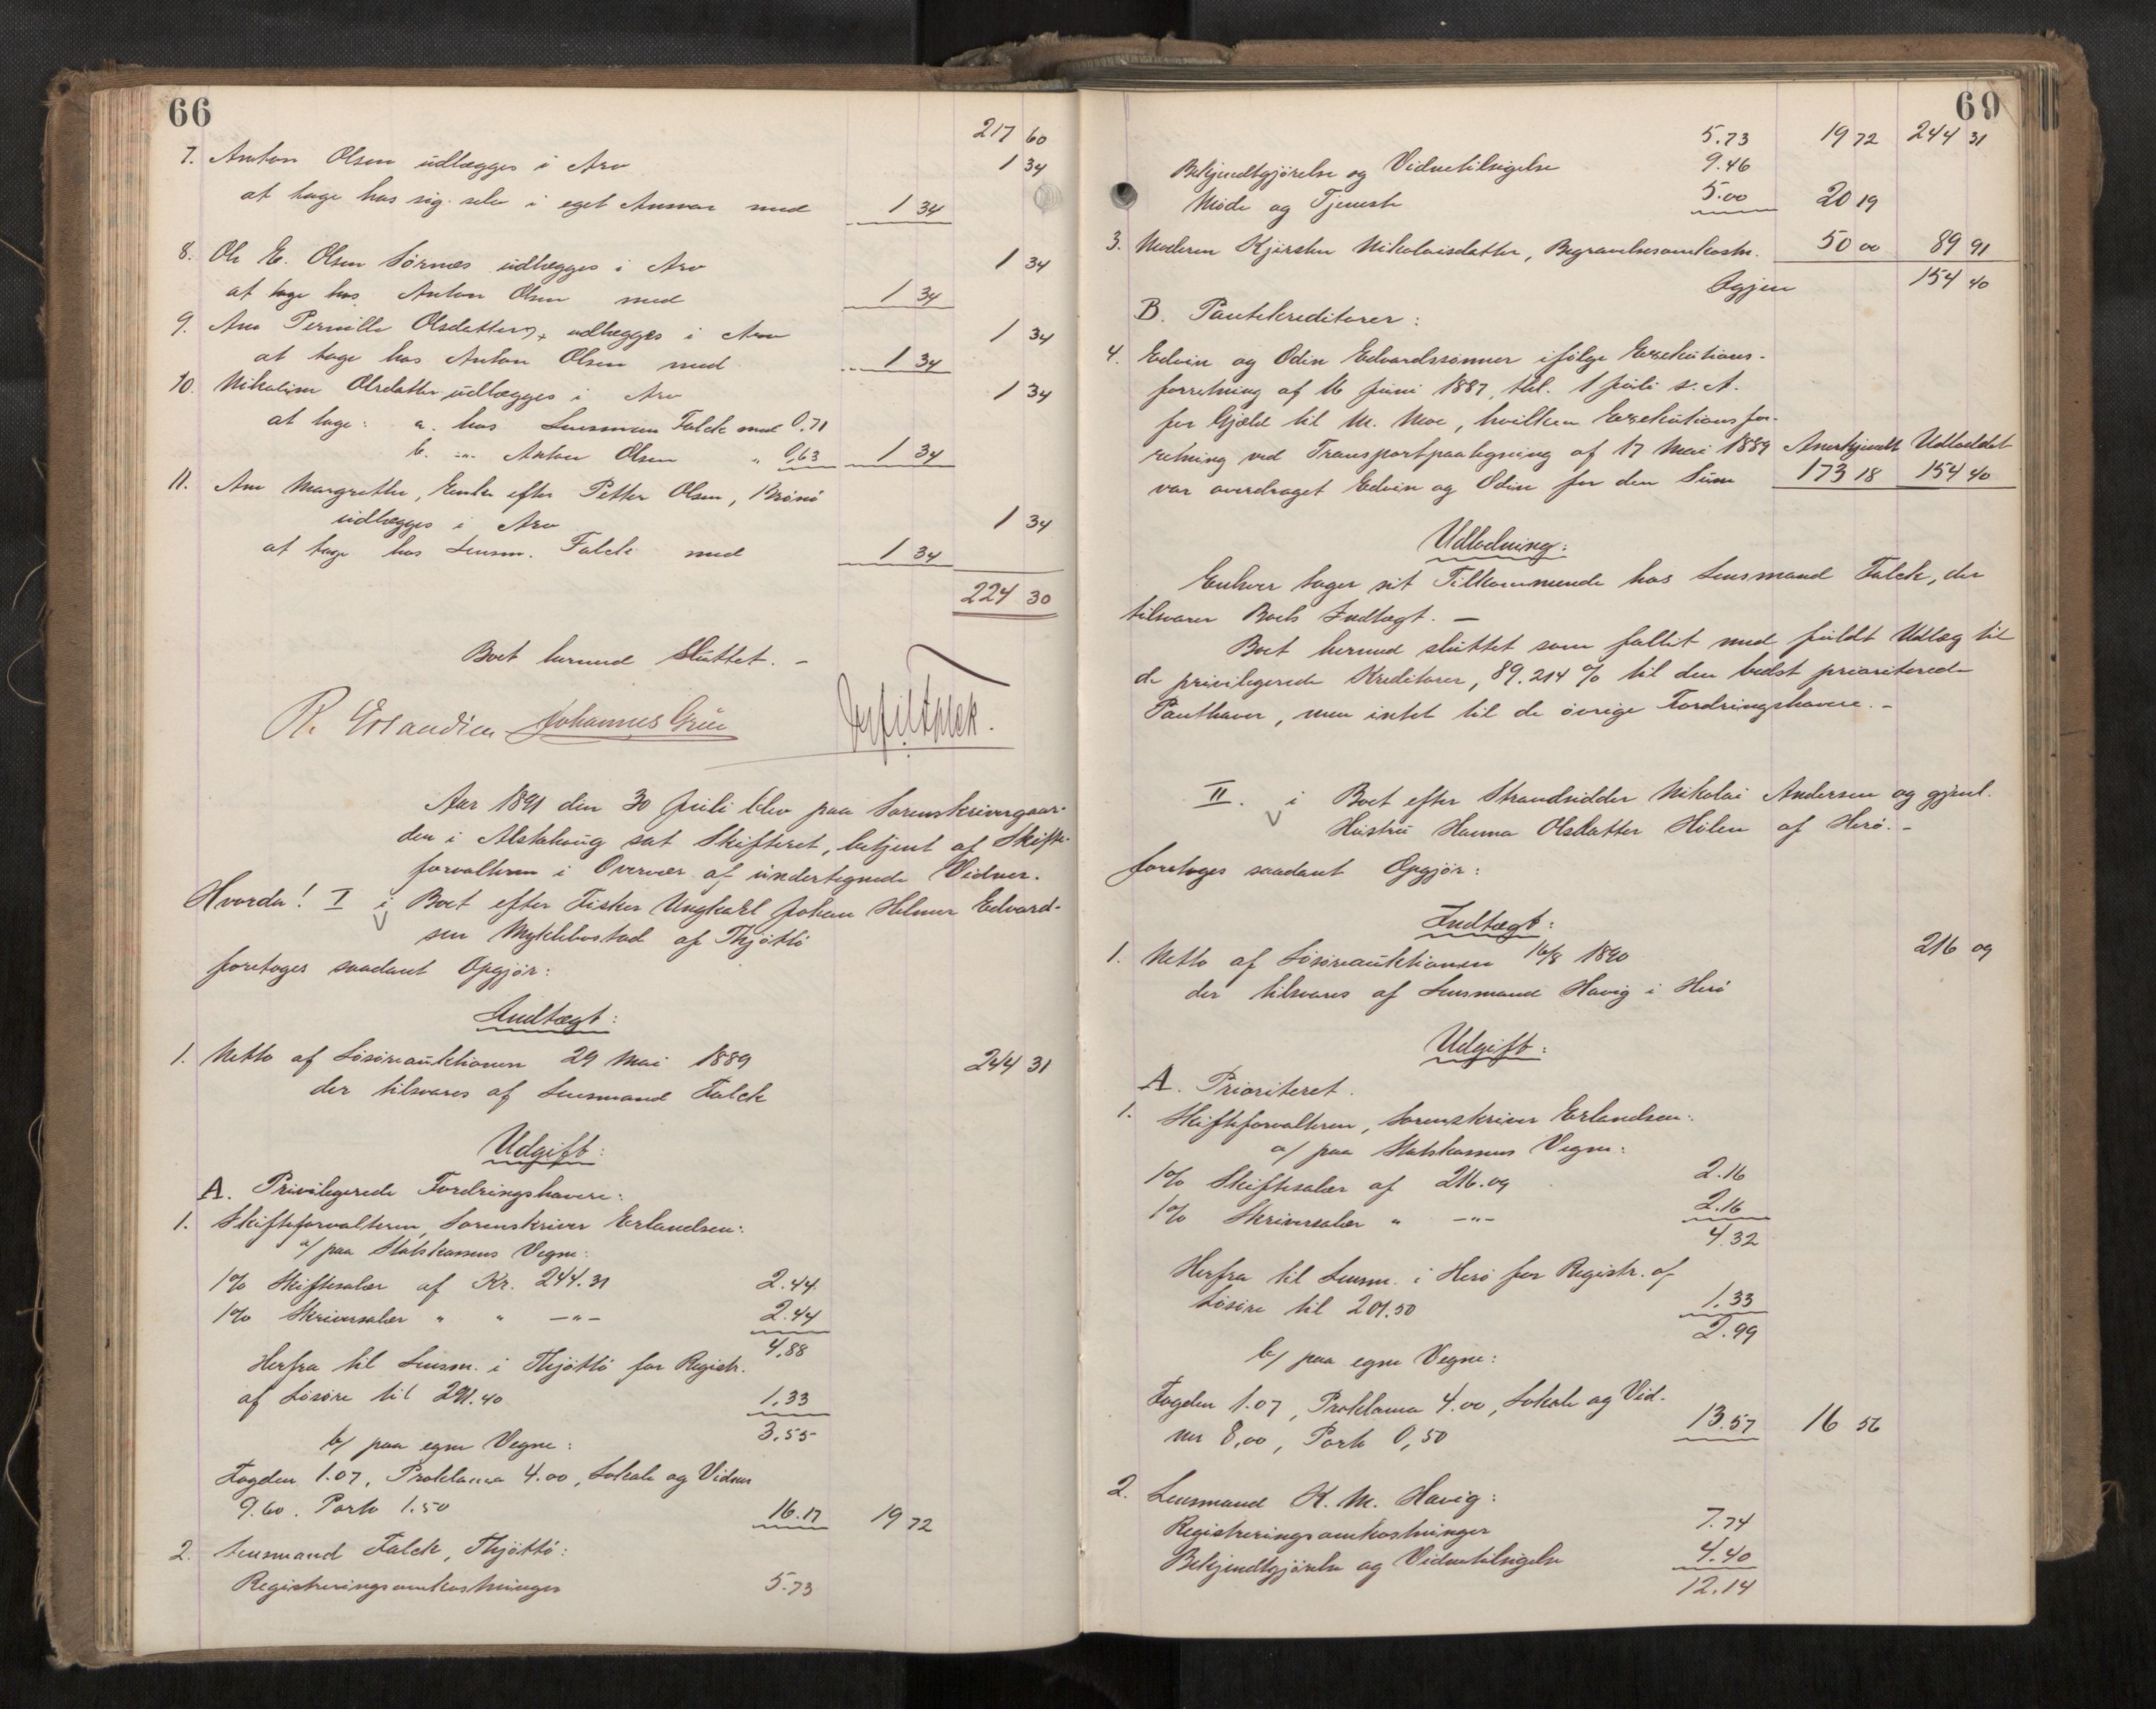 66
217 60
7. Anton Olsen udlægges i Arv 1 34
at tage hos sig selv i eget Ansvar med 1 34
8. Ole E. Olsen Sörnes udlægges i Arv 1 34
at tage hos Anton Olsen med 1 34
9. Ane Pernille Olsdatter udlægges i Arv 1 34
at tage hos Anton Olsen med 1 34
10. Nikoline Olsdatter udlægges i Arv 1 34
at tage: a. hos Lensmann Falck med 0,71
b. -"- Anton Olsen " 0,63 1 34
11. Ane Margrethe, Enke efter Petter Olsen, Brönö
udlægges i Arv 1 34
at tage hos Lensm. Falck med 1 34
224 30
Boet hermed sluttet. -
R. Erlandsen Johannes Grue
Aar 1891 den 30 Juli blev paa Sorenskrivergaar-
den i Alstahoug sat Skifteret, betjent af Skifte-
forvalteren i Overvær af undertegnede Vidner.
Hvorda! I i Boet efter Fisker Ungkarl Johan Helmer Edvard-
sen Myklebostad af Thjöttö
foretoges saadant Opgjör:
Indtægt:
1. Netto af Lösöreauktionen 29 Mai 1889 244 31
der tilsvares af Lensmand Falck
Udgift:
A. Privilegerede Fordringshavere:
1. Skifteforvalteren, Sorenskriver Erlandsen:
a/ paa Statskassens Vegne:
1% Skiftesalær af Kr. 244.31 2.44
1% Skriversalær " " -"- 2.44
4,88
Herfra til Lensm. i Thjöttö for Registr.
af Lösöre til 291.40 1,33
3,55
b/ paa egne Vegne:
Fogden 1.07, Proklama 4.00, Lokale og Vidner
9.60. Porto 1.50 16.17 19 72
2. Lensmand Falck, Thjöttö:
Registreringsomkostninger 5.73
69
5.73 19 72 244 31
Bekjendtgjörelse og Vidnetilsigelse 9.46
Möde og Tjeneste 5.00 20 19
3. Moderen Kjersten Nikolaisdatter, Begravelsesomkostn. 50 00 89 91
Igjen 154 40
B. Pantekreditorer:
4. Edvin og Odin Edvardssönner ifölge Exekutions-
forretning af 16 Juni 1887, thl. 1 Juli s. A.
for Gjæld til M. Moe, hvilken Exekutionsfor-
retning ved Transportpaategning af 17 Mai 1889 Anerkjendt Udloddet
var overdraget Edvin og Odin for den Sum 173 18 154 40
Udlodning:
Enhver tager sit Tilkommende hos Lensmand Falck, der
tilsvarer Boets Indtægt. -
Boet hermed sluttet som fallit med fuldt Udlæg til
de privilegerede Kreditorer, 89.214 % til den bedst prioriterede
Panthaver, men intet til de övrige Fordringshavere. -
II. i Boet efter Strandsidder Nikolai Andersen og gjenl.
Hustru Hanna Olsdatter Hölen af Herö. -
foretoges saadant Opgjör:
Indtægt:
1. Netto af Lösöreauktionen 16/8 1890 216 09
der tilsvares af Lensmand Havig i Herö
Udgift:
A. Prioriteret.
1. Skifteforvalteren, Sorenskriver Erlandsen:
a/ paa Statskassens Vegne:
1% Skiftesalær af 216.09 2.16
1% Skriversalær " -"- 2.16
4.32
Herfra til Lensm. i Herö for Registr. af
Lösöre til 201.50 1.33
2.99
b/ paa egne Vegne:
Fogden 1.07, Proklama 4.00, Lokale og Vid-
ner 8,00, Porto 0,50 13.57 16 56
2. Lensmand K. M. Havig:
Registreringsomkostninger 7.74
Bekjendtgjörelse og Vidnetilsigelse 4.40
12.14